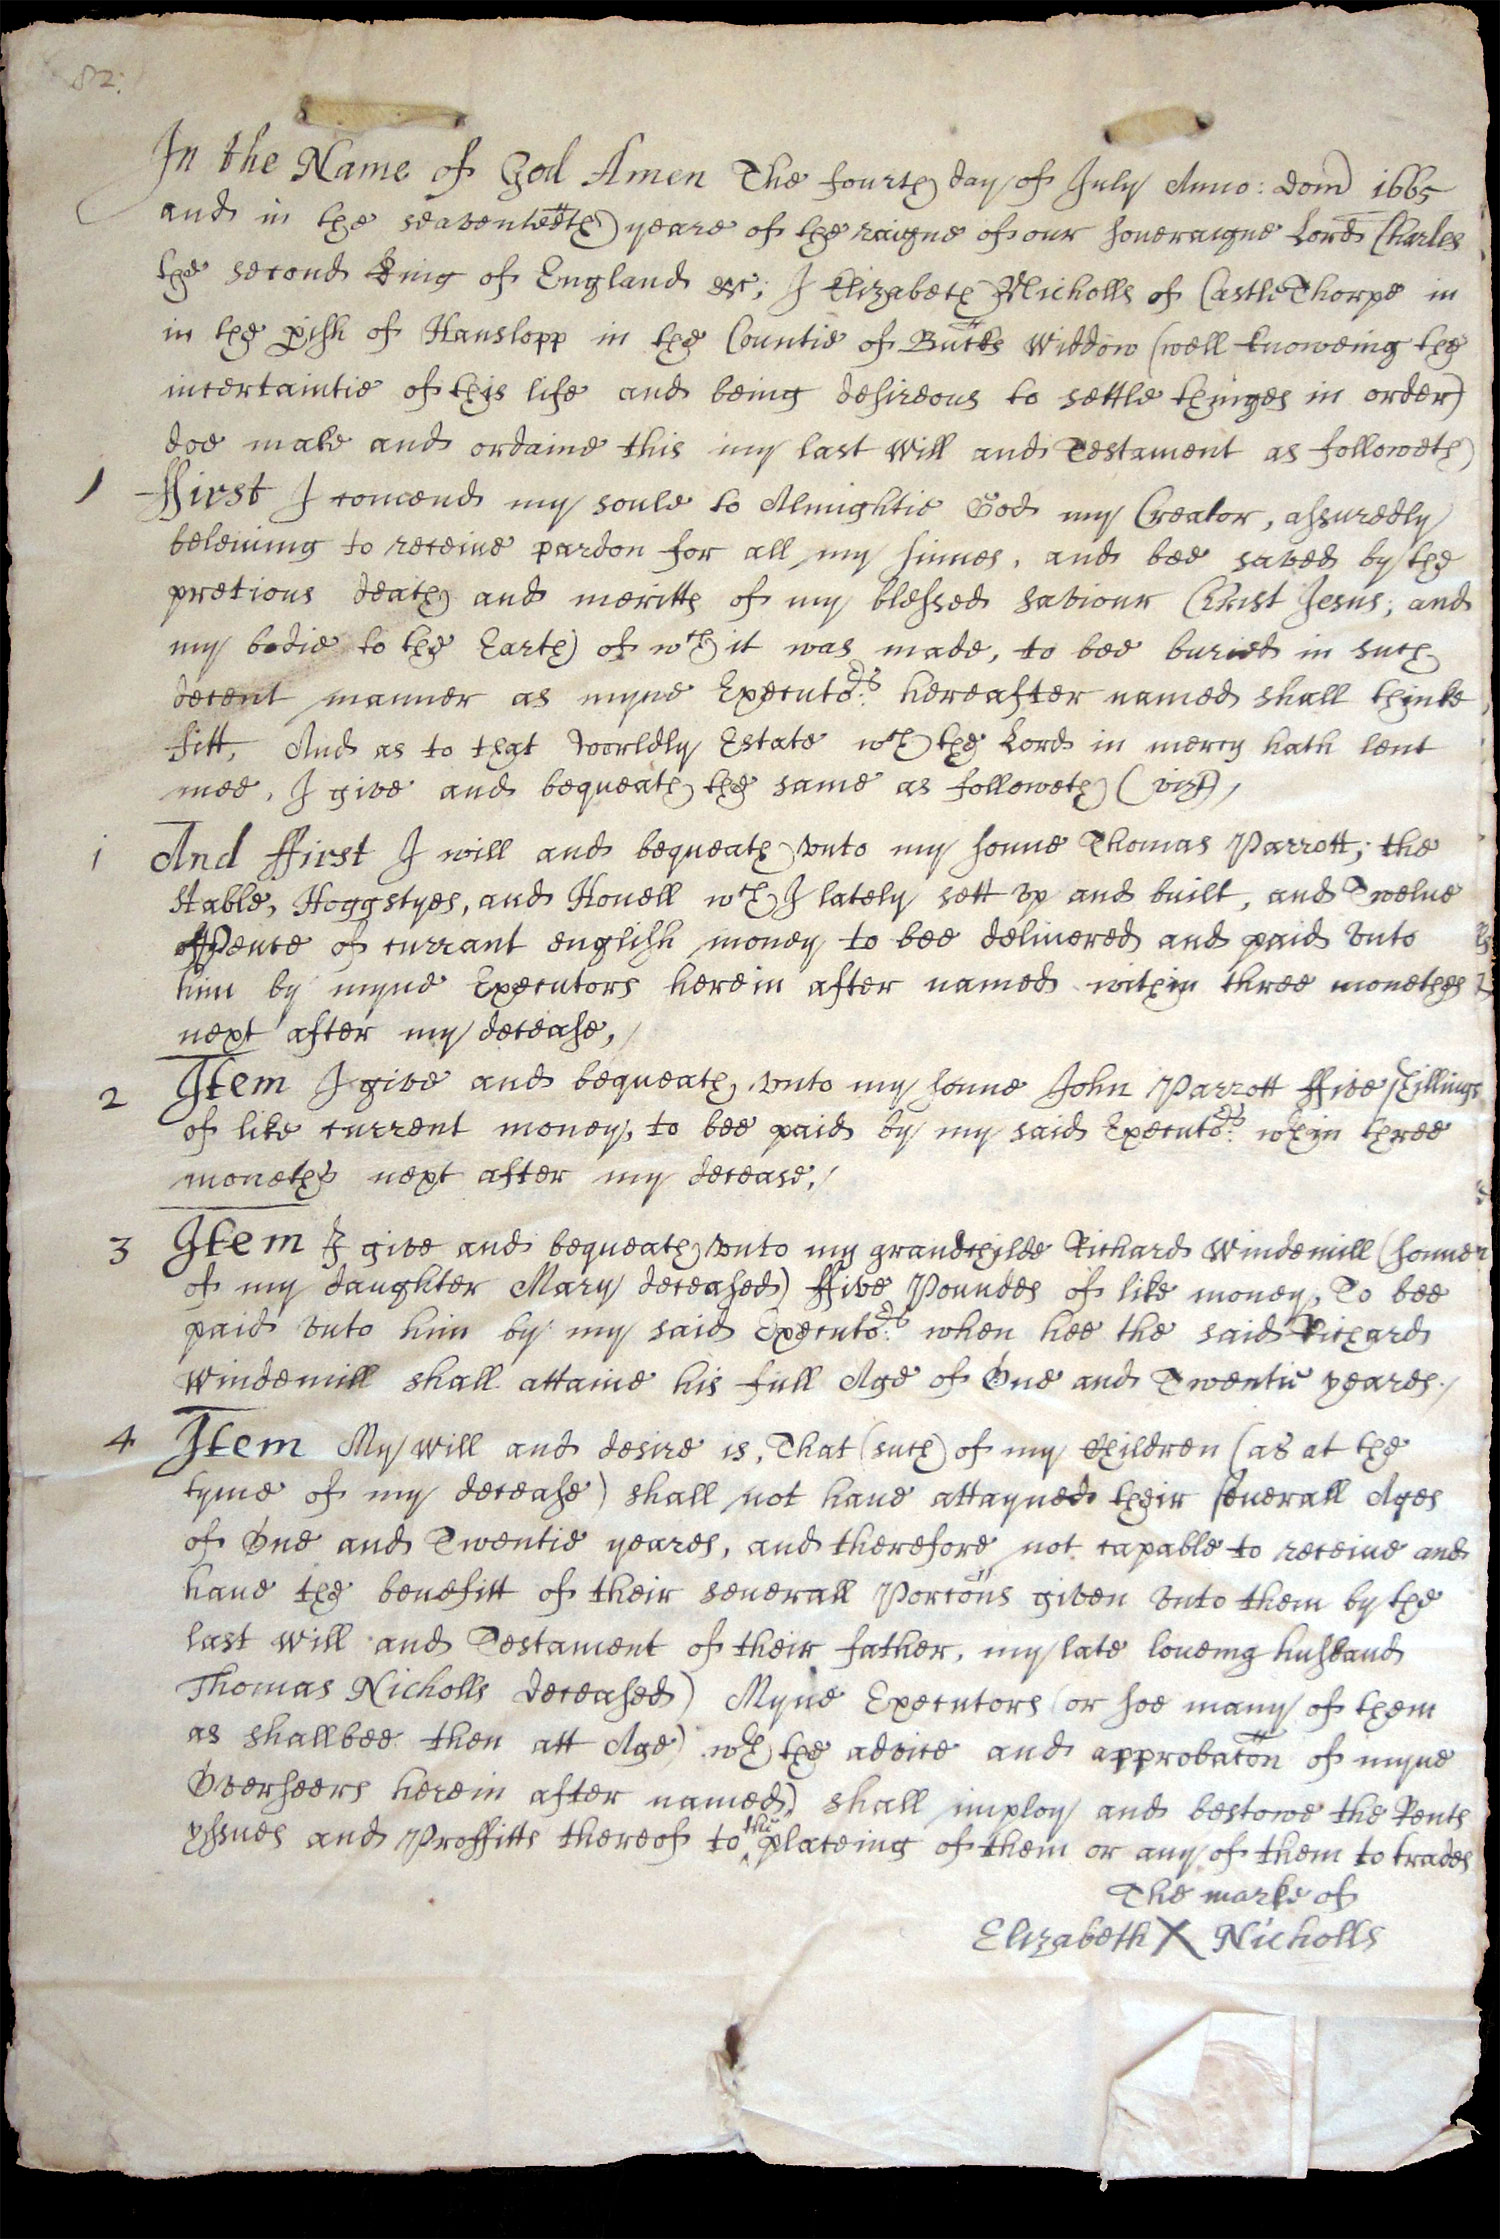 82:
In the Name of God Amen The fourth day of July Anno: Dom 1665
and in the seaventeeth yeare of the raigne of our soueraigne Lord Charles
the second King of England &c; I Elizabeth Nicholls of CastleThorpe in
in the pish of Hanslopp in the Countie of Bucks Widdow (well knoweing the
incertaintie of this life and being desireous to settle thinges in order)
doe make and ordaine this my last Will and Testament as followeth
1 ffirst I comend my soule to Almightie God my Creator, assuredly
beleiuing to receiue pardon for all my sinnes, and bee saved by the
pretious death and meritts of my blessed Saviour Christ Jesus; and
my bodie to the Earth of wch it was made, to bee buried in such
decent manner as myne Executors hereafter named shall thinke
fitt, And as to that worldly Estate wch the Lord in mercy hath lent
mee, I give and bequeath the same as followeth (vizt),
1 And ffirst I will and bequeath vnto my sonne Thomas Parrott; the
stable, Hoggstyes, and Houell wch I lately sett vp and built, and Twelue
Pence of currant english money to bee deliuered and paid vnto
him by myne Executors herein after named within three monethes
next after my decease,
2 Item I give and bequeath vnto my sonne John Parrott ffive shillings
of like current money, to bee paid by my said Executors wthin three
moneths next after my decease,
3 Item I give and bequeath vnto my grandchilde Richard Windemill (sonne
of my daughter Mary deceased) ffive Poundes of like money, To bee
paid vnto him by my said Executors when hee the said Richard
Windemill shall attaine his full Age of One and Twentie yeares.
4 Item My will and desire is, That (such of my Children (as at the
tyme of my decease) shall not haue attayned their seuerall Ages
of One and Twentie yeares, and therefore not capable to receiue and
haue the benefitt of their seuerall Portons given vnto them by the
last will and Testament of their father, my late loueing husband
Thomas Nicholls deceased) Myne Executors (or soe many of them
as shallbee then att Age) wth the advice and approbaton of myne
Overseers herein after named) shall imploy and bestowe the Rents
yssues and Proffitts thereof to the placeing of them or any of them to trades
The marke of
Elizabeth X Nicholls